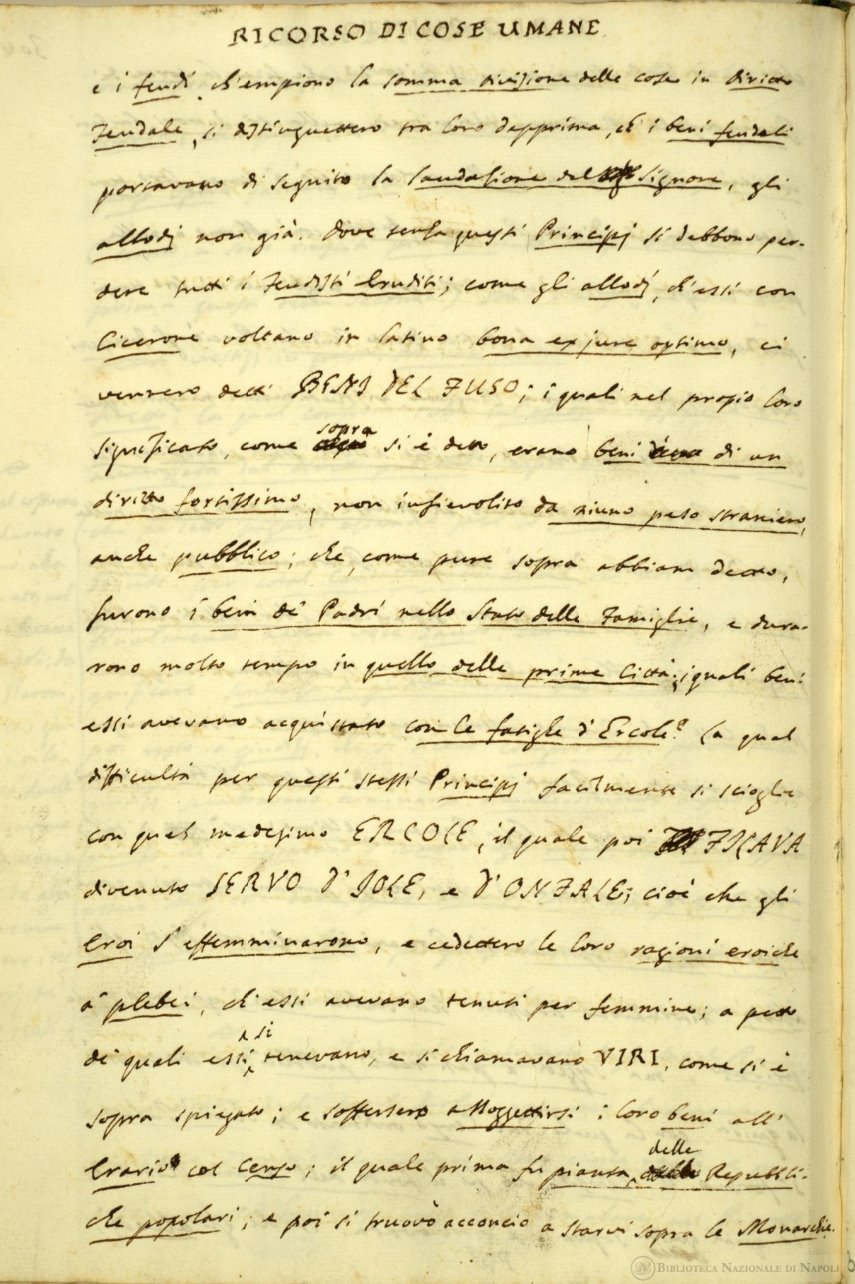 RICORSO DI COSE UMANE
e i feudi, ch'empiono la somma divisione delle cose in diritto
Feudale, si distinguettero tra loro dapprima, ch' i beni feudali
portavano di seguito la laudazione del Signore, gli
allodj non già. dove senza questi Principj si debbono per-
dere tutti i Feudisti Eruditi; come gli allodj, ch'essi con
Cicerone voltano in latino bona ex jure optimo, ci
vennero detti BENI DEL FUSO; i quali nel propio loro
significato, come sopra si è detto, erano beni di un
diritto fortissimo, non infievolito da niuno peso straniero,
anche pubblico; che, come pure sopra abbiam detto,
furono i beni de' Padri nello Stato delle Famiglie, e dura-
rono molto tempo in quello delle prime Città; i quali beni
essi avevano acquistato con le fatighe d'Ercole? La qual
difficultà per questi stessi Principj facilmente si scioglie
con quel medesimo ERCOLE, il quale poi FILAVA
divenuto SERVO D'JOLE, e D'ONFALE; cioè che gli
Eroi s'effemminarono, e cedettero le loro ragioni eroiche
a' plebei, ch'essi avevano tenuti per femmine; a petto
de' quali essi si tenevano, e si chiamavano VIRI, come si è
sopra spiegato; e soffersero assoggettirsi i loro beni all'
Erario col Censo; il quale prima fu pianta delle Repubbli-
che popolari; e poi si truovò acconcio a starvi sopra le Monarchie.
BIBLIOTECA NAZIONALE DI NAPOLI